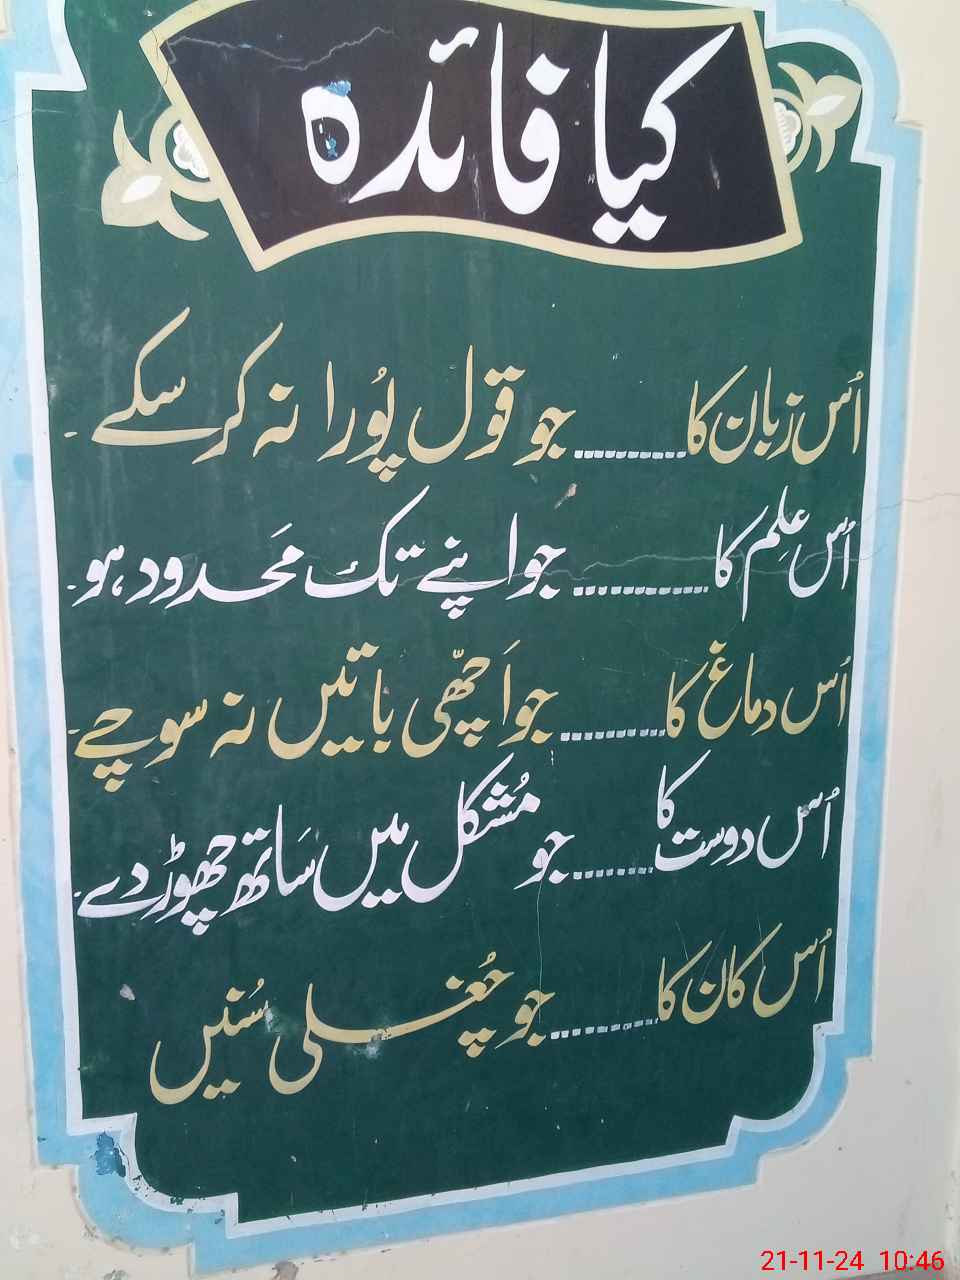 کیا فائدہ
اُس زبان کا.......... جو قول پُورا نہ کر سکے-
اُس عِلم کا............ جو اپنے تک مَحدود ہو-
اُس دماغ کا.......... جو اَچھّی باتیں نہ سوچے-
اُس دوست کا........ جو مُشکل میں سَاتھ چھوڑ دے-
اُس کان کا.......... جو چُغلی سُنیں
21-11-24 10:46